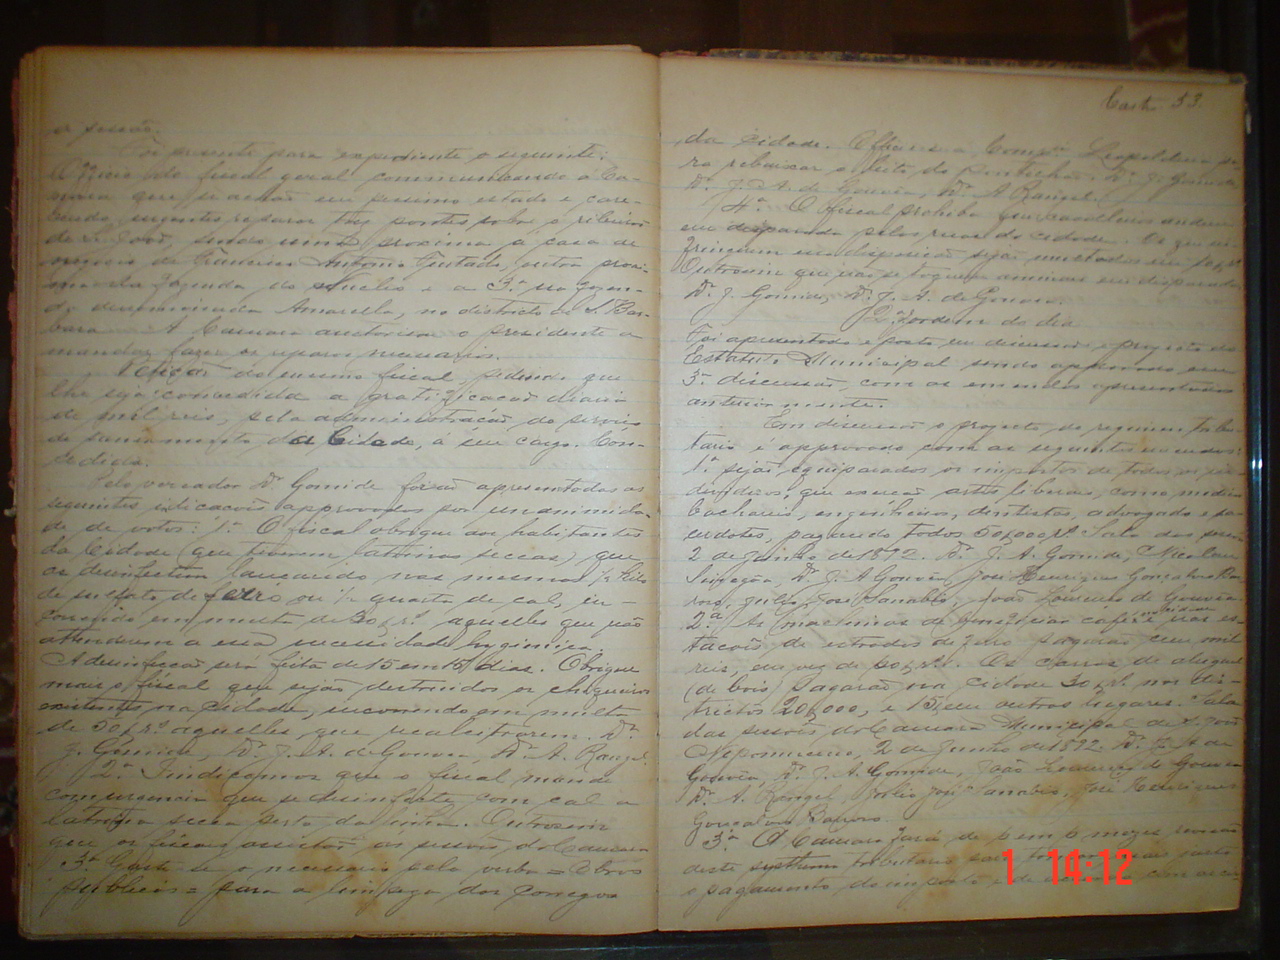 a sessão.
Foi presente para expediente o seguinte:
Officio do fiscal geral communicando á Ca-
mara que se achão em pessimo estado e care-
cendo urgentes reparos tres pontes sobre o ribeirão
de S. João, sendo uma proxima a casa de
negocio de Francisco Antonio Furtado, outra proxi-
ma a fazenda do e a 3ª na fazen-
da denominada Amarella, no districto de S. Bar-
bara. A Camara auctorisou o presidente a
mandar fazer os reparos necessarios.
Petição do mesmo fiscal, pedindo que
lhe seja concedida a gratificação diaria
de mil reis, pela administração do serviço
de saneamento da Cidade, á seu cargo. Con-
cedida.
Pelo vereador Dr. Gomide forão apresentadas as
seguintes indicações approvadas por unanimida-
de de votos: 1ª O fiscal obrigue aos habitantes
da Cidade (que tiverem latrinas seccas) que
as desinfectem, lançando nas mesmas ½ kilo
de sulfato de ferro ou ½ quarta de cal, in-
correndo em multa de 30$rs. aquelles que não
attenderem a essa necessidade hygienica.
A desinfecção será feita de 15 em 15 dias. Obrigue
mais o fiscal que sejão destruidos os chiqueiros
existentes na cidade, incorrendo em multa
de 50$rs. aquelles que recalcitrarem. Dr.
J. Gomide, Dr. J. A. de Gouvêa, Dr. A. Rangel.
2ª Indicamos que o fiscal mande
com urgencia que se desinfecte com cal a
latrina secca perto da Outrosim
que os fiscaes assistão as sessões da Camara
3ª Gaste-se o necessario pela verba = Obras
Publicas = para a limpeza dos corregos
Castro 53
da Cidade. Officie-se a Compª Leopoldina pa-
ra rebaixar o leito do pontilhão. Dr. J. Gomide,
Dr. J. A. de Gouvêa, Dr. A. Rangel.
4ª O fiscal prohiba que cavalleiros andem
em disparada pelas ruas da cidade. Os que in-
fringirem esta disposição sejão multados em 10$rs.
Outrosim que não se toquem animaes em disparada.
Dr. J. Gomide, Dr. J. A. de Gouvea.
2ª ordem do dia
Foi apresentado e posto em discussão o projecto do
Estatuto Municipal sendo approvado em
3ª discussão, com as emendas apresentadas
anteriormente.
Em discussão o projecto do regimen tribu-
tario é approvado com as seguintes emendas:
1ª sejão equiparados os impostos de todos os in-
dividuos, que exerção artes liberaes, como medicos
bachareis, engenheiros, dentistas, advogados e sa-
cerdotes, pagando todos 50$000rs. Sala das sessões
2 de Junho de 1892. Dr. J. A. Gomide, Nicolau
Dr. J. A. Gouvêa, José Henriques Gonçalves Ba-
rroso, Julio José Canabio, João Lourenço de Gouvêa.
2ª As machinas de beneficiar café nas es-
tações de estradas de ferro pagarão cem mil
reis, em vez de Os carros de aluguel
(de bois) pagarão na cidade 30$rs. nos dis-
trictos 20$000, e 15, em outros lugares. Sala
das sessões da Camara Municipal de S. João
Nepomuceno, 2 de Junho de 1892. Dr. J. A. de
Gouvêa, Dr. J. A. Gomide, João Lourenço de Gouvea
Dr. A. Rangel, Julio José Canabio, José Henriques
Gonçalves Barroso.
3ª A Camara fará de 6 em 6 mezes revisão
deste systhema tributario
o pagamento do imposto
1 14:12